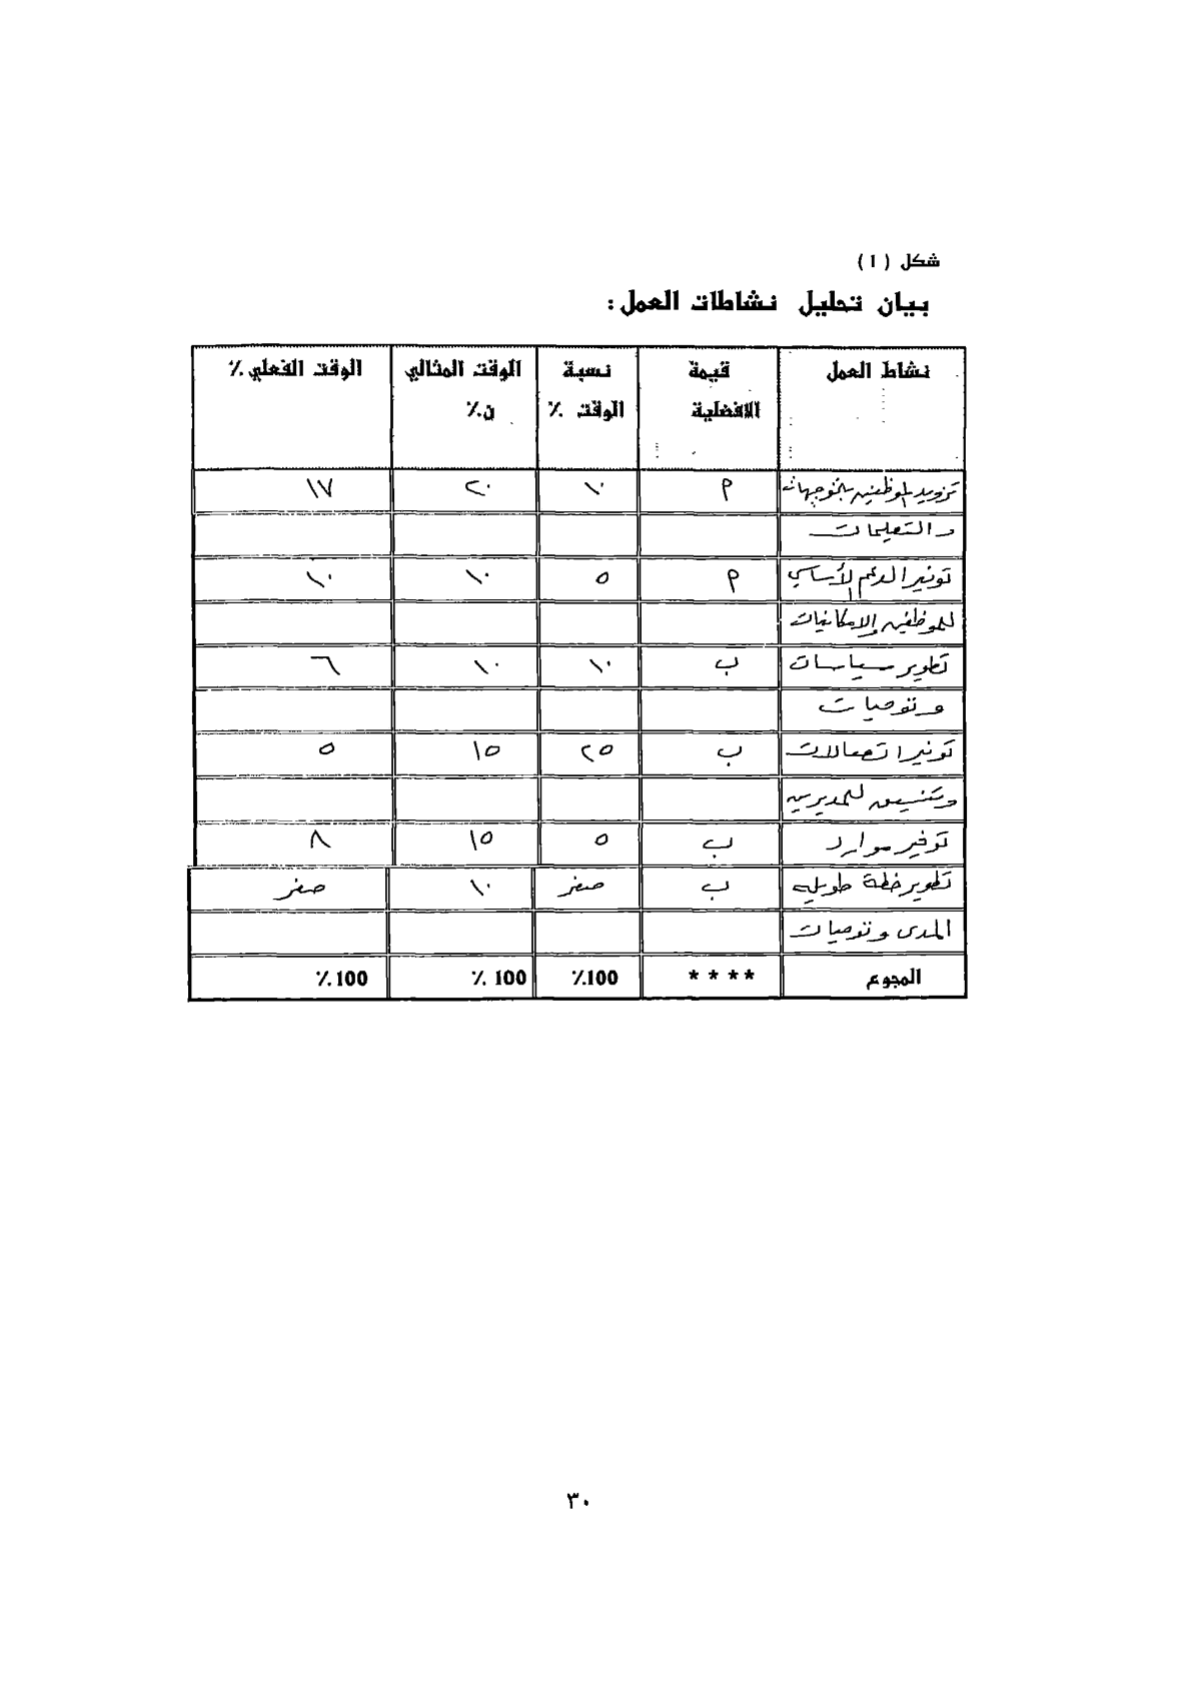 شكل ( 1 )
بيان تحليل نشاطات العمل :
نشاط العمل قيمة الافضلية نسبة الوقت ٪ الوقت المثالي ن٪ الوقت الفعلي ٪
تزويد الموظفين بالتوجيهات م ١٠ ٢٠ ١٧
والتعليمات
توفير الدعم الأساسي م ٥ ١٠ ١٠
للموظفين والامكانيات
تطوير سياسات ب ١٠ ١٠ ٦
وتوصيات
توفير اتصالات ب ٢٥ ١٥ ٥
وتنسيق للمديرين
توفير موارد ب ٥ ١٥ ٨
تطوير خطة طويله ب صفر ١٠ صفر
المدى وتوصيات
المجوع **** 100٪ 100 ٪ 100 ٪
٣٠